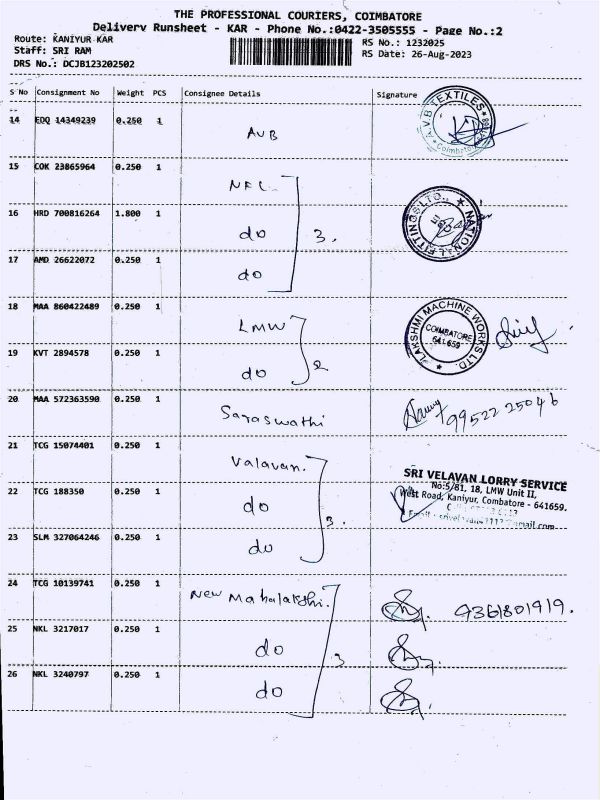 THE PROFESSIONAL COURIERS, COIMBATORE
Delivery Runsheet - KAR - Phone No.:0422-3505555 - Page No.:2
Route: KANIYUR KAR
RS No.: 1232025
Staff: SRI RAM
RS Date: 26-Aug-2023
DRS No.: DCJB123202502
S No Consignment No Weight PCS Consignee Details Signature
14 EDQ 14349239 0.250 1 AVB A.V.B TEXTILES Coimbatore
15 COK 23865964 0.250 1 NFL
16 HRD 700816264 1.800 1 do 3. NATIONAL FITTINGS LTD.,
17 AMD 26622072 0.250 1 do
18 MAA 860422489 0.250 1 LMW LAKSHMI MACHINE WORKS LTD. COIMBATORE 641 659
19 KVT 2894578 0.250 1 do 2
20 MAA 572363590 0.250 1 Saraswathi 99522 25046
21 TCG 15074401 0.250 1 Valavan. SRI VELAVAN LORRY SERVICE
No:5/81, 18, LMW Unit II,
22 TCG 188350 0.250 1 do 3. West Road, Kaniyur, Combatore - 641659.
23 SLM 327064246 0.250 1 do
24 TCG 10139741 0.250 1 New Mahalakshi. 9361801919.
25 NKL 3217017 0.250 1 do 3
26 NKL 3240797 0.250 1 do